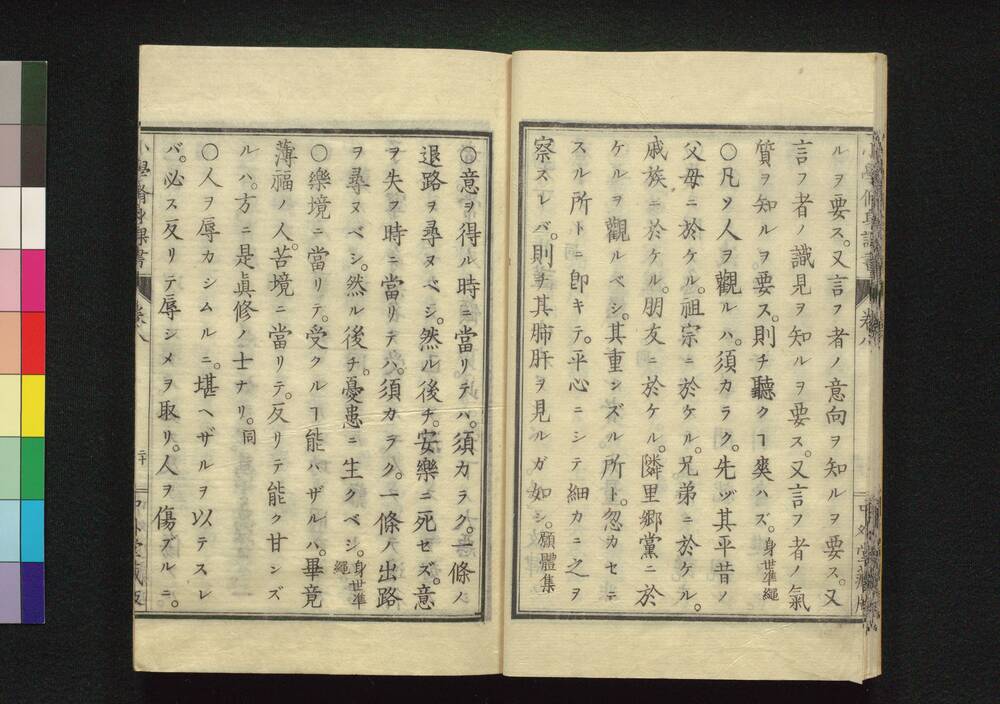 ルヲ要ス。又言フ者ノ意向ヲ知ルヲ要ス。又
言フ者ノ識見ヲ知ルヲ要ス。又言フ者ノ氣
質ヲ知ルヲ要ス。則チ聽クヿ爽ハズ。身世準繩
○凡ソ人ヲ觀ルハ。須カラク。先ヅ其平昔ノ
父母ニ於ケル。祖宗ニ於ケル。兄弟ニ於ケル。
戚族ニ於ケル。朋友ニ於ケル。隣里郷黨ニ於
ケルヲ觀ルベシ。其重シズル所ト。忽カセニ
スル所トニ卽キテ。平心ニシテ細カニ之ヲ
察スレバ。則チ其肺肝ヲ見ルガ如シ。願體集
○意ヲ得ル時ニ當リテハ。須カラク。一條ノ
退路ヲ尋ヌベシ。然ル後チ。安樂ニ死セズ。意
ヲ失フ時ニ當リテハ。須カラク。一條ノ出路
ヲ尋ヌベシ。然ル後チ。憂患ニ生クベシ。身世準繩
○樂境ニ當リテ。受クルヿ能ハザルハ。畢竟
薄福ノ人。苦境ニ當リテ。反リテ能ク甘シズ
ルハ。方ニ是眞修ノ士ナリ。同
○人ヲ辱カシムルニ。堪ヘザルヲ以テスレ
バ。必ス反リテ辱シメヲ取リ。人ヲ傷ズルニ。
小學脩身課書
卷八
二十
中外堂藏版